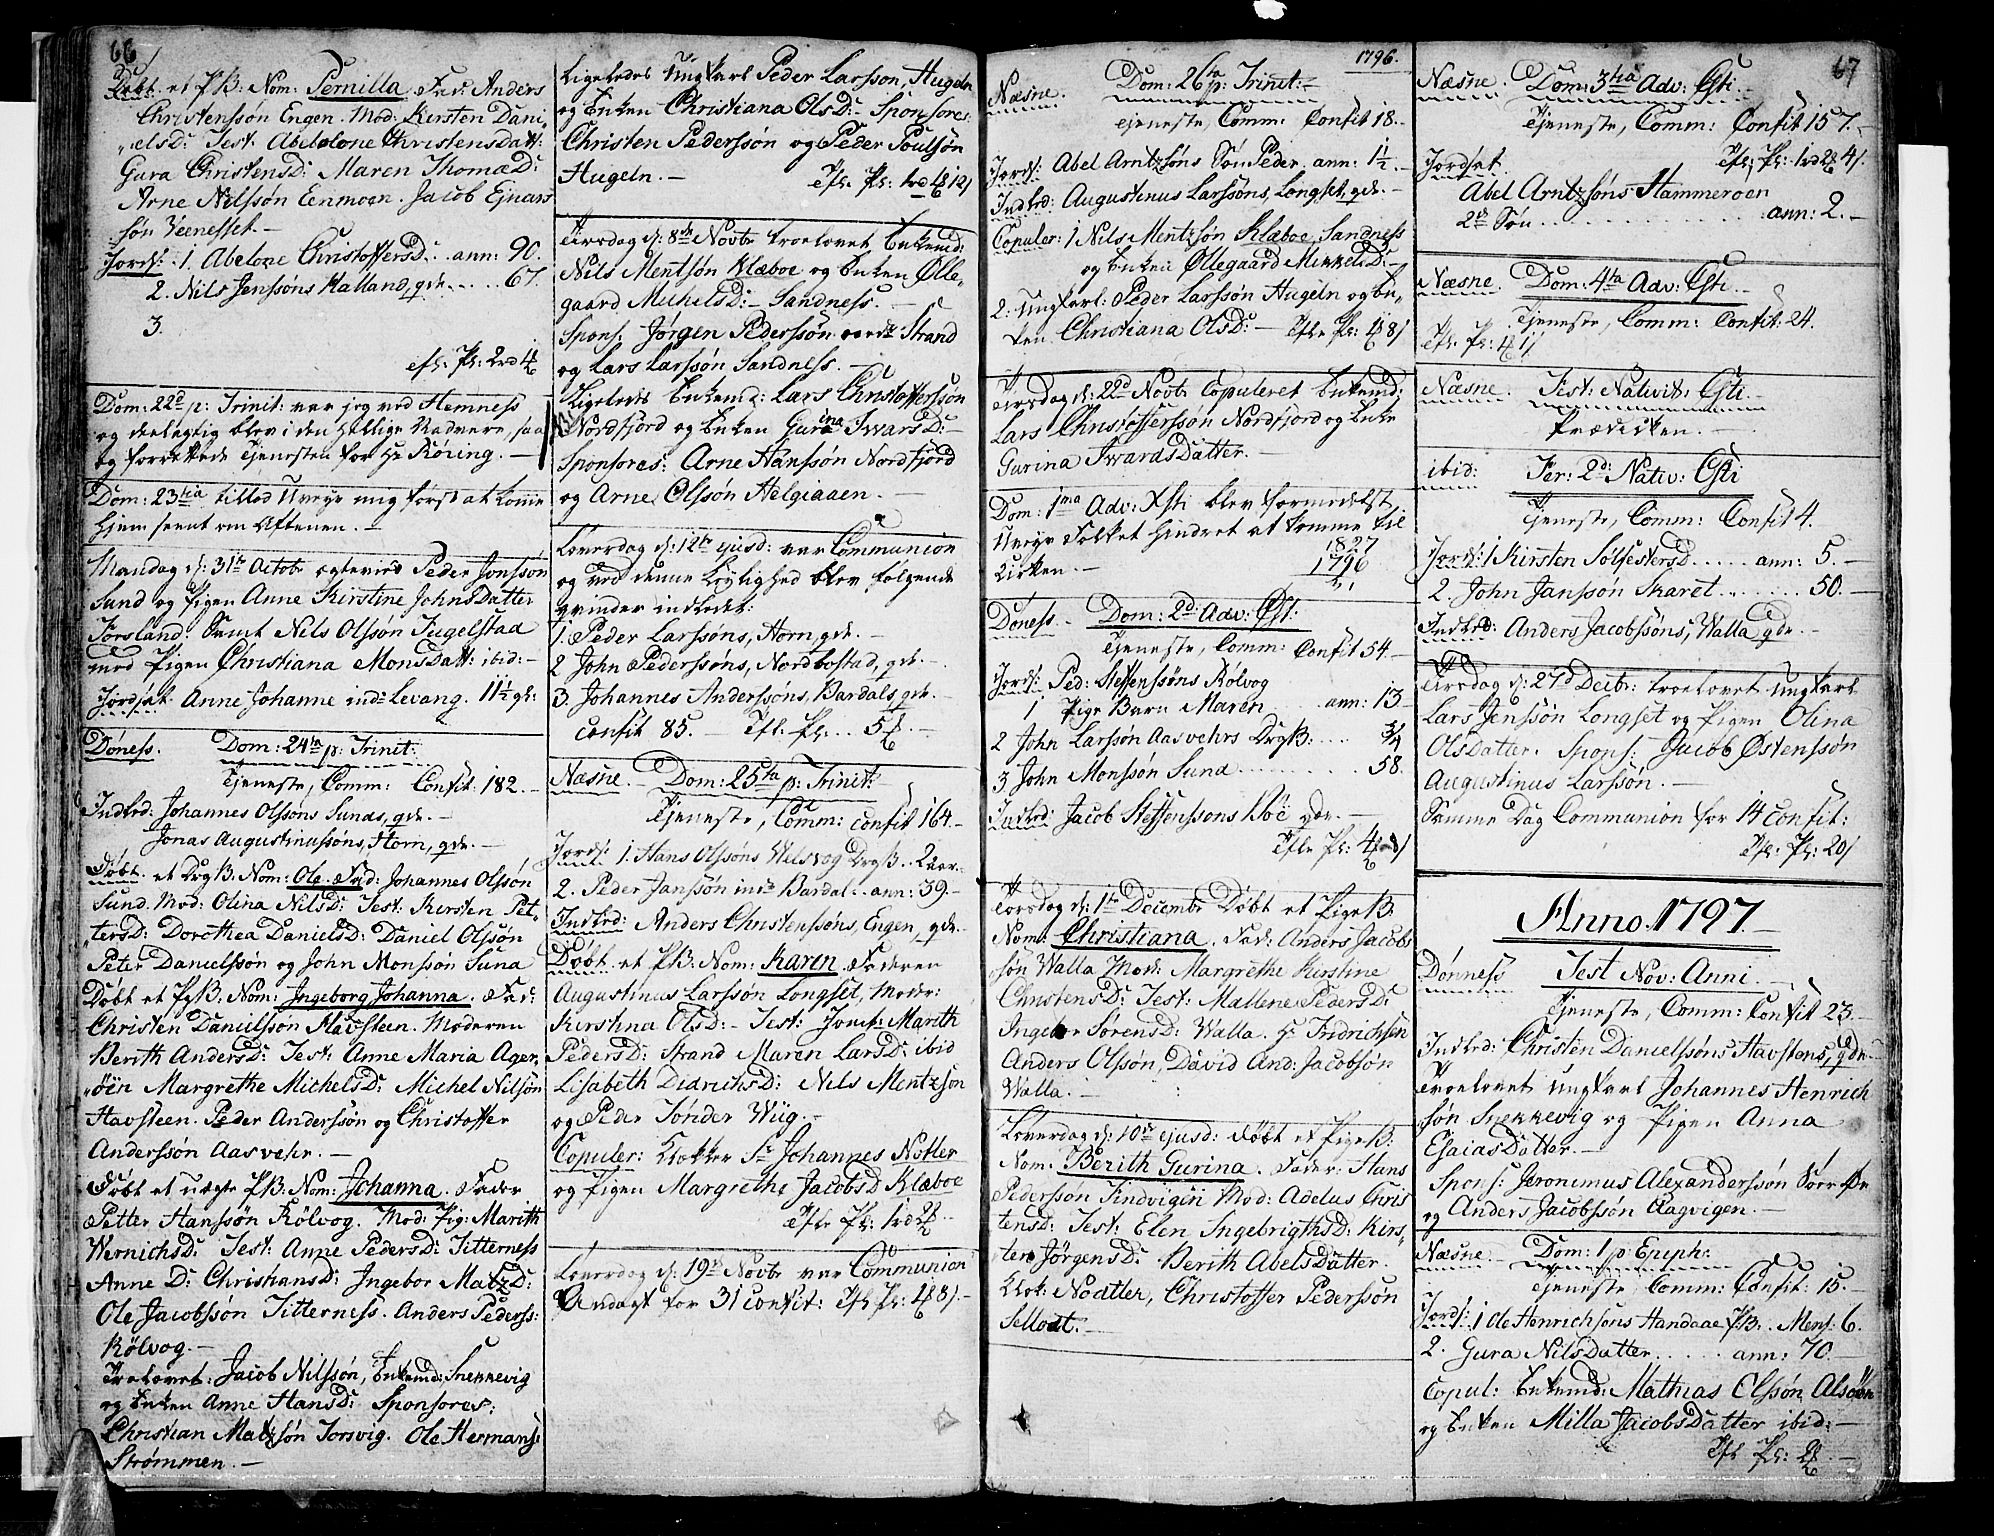 66
Döbt et PB: Nom: Pernilla. Fad: Anders
Christenssön Engen. Mod: Kirsten Dani
„elsD: Test: Abelone Christensdatt:
Gura ChristensD: Maren ThomæD:
Arne Nilssön Eenmoen. Jacob Ejnars
sön Veenesset.
Jords: 1. Abelone ChristoffersD. ann: 90.
2. Nils Jenssöns Kalland, qde. 67.
3.
efl: Pl: 2rd 4
Dom: 22d p: Trinit: var jeg ved Hemness
og deelagtig blev i den hellige Nadvere, saa
og forrettede Tjenesten for Hr Röring.
Dom: 23tia tillod Uveyr mig først at komme
hjem seent om Aftenen.
Mandag d: 31te Octobr ægteviet Peder Jonssön
Sund og Pigen Anne Kirstine JohnsDatter
Forsland. Samt Nils Olssön Tugelstad
med Pigen Christiana MonsDatt: ibid:
Jordsat Anne Johanne ind: Levang. 11½
Döness. Dom: 24ta p: Trinit:
Tjeneste, Comm: Confit: 182.
Indled: Johannes Olssöns Sunds, qde.
Jonas Augustinussöns, Horn, qde.
Döbt et DrgB: Nom: Ole. Fad: Johannes Olssön
Sund. Mod: Olina NilsD: Test: Kirsten Pet-
„tersD: Dorothea DanielsD: Daniel Olssön
Peter Danielssön og John Monssön Sund
Döbt et PgB: Nom: Ingeborg Johanna. Fad:
Christen Danielssön Havsteen. Moderen
Berith AndersD: Test: Anne Maria Ager-
„öen Margrethe MichelsD: Michel Nilssön
Havsteen. Peder Anderssön og Christoffer
Anderssön Aasvehr.
Döbt et uægte PB: Nom: Johanna. Fader
Petter Hanssön Kölvog. Mod: Pig: Marith
WernichsD: Test: Anne PedersD: Titterness
Anne D: ChristiansD: Ingebor MatzD:
Ole Jacobssön Titterness. Anders Pederss:
Kölvog.
Troelovet: Jacob Nilssön, Enkemd: Snekkevig
og Enken Anne HansD: Sponsores:
Christian Matzsön Torsvig. Ole Hermans:
Strömmen.
Ligeledes Ungkarl Peder Larssön, Hugeln
og Enken Christiana OlsD: Sponsores:
Christen Pederssön og Peder Poulsön
Hugeln. efl: Pl: 1rd 4 12/
Tirsdag d: 8de Novbr troelovet Enkemd:
Nils Mentsön Klæboe og Enken Ölle-
gaard MichelsD: Sandness.
Spons: Jörgen Pederssön Strand
og Lars Larssön Sandness.
Ligeledes Enkemd: Lars Christofferssön
Nordfjord og Enken Gurina IwarsD:
Sponsores: Arne Hanssön Nordfjord
og Arne Olssön Helgiaaen.
Löverdag d: 12te ejusd: var Communion
og ved denne Leylighed blev fölgende
qvinder indledet:
1. Peder Larssöns, Horn, qde.
2 John Pederssöns, Nordbostad, qde.
3. Johannes Anderssöns, Bardals, qde.
Confit 85. Efl: Pl: 5
Næsne. Dom: 25ta p: Trinit:
Tjeneste, Comm: Confit 164.
Jords: 1. Hans Olssöns Wilsvog DrgB. 2
2. Peder Janssön Bardal. ann: 39.
Indled: Anders Christenssöns, Engen, qde.
Döbt et PB: Nom: Karen. Faderen
Augustinus Larssön Longset, Moder:
Kirstina OlsD: Test: Jomf: Marith
PedersD: Strand Maren LarsD: ibid
Lisabeth DidrichsD: Nils Mentzsön
og Peder Tönder Wiig.
Copuler: Klokker Sr Johannes Nötler
og Pigen Margrethe JacobsD Klæboe
Efle Pl: 1rd 2
Löverdag d: 19de Novbr var Communion
Andagt for 31 Confit: Efl Pl: 4 8/
1796.
Næsne. Dom: 26ta p: Trinit:
Tjeneste, Comm: Confit 18.
Jords: Abel Arntzsöns Sön Peder. ann: 1½
Indled: Augustinus Larssöns, Longset, qde.
Copuler: 1 Nils Mentzsön Klæboe, Sandness
og Enken Öllegaard MikkelsD:
2. Ungkarl: Peder Larssön Hugeln og En-
ken Christiana OlsD: Efle Pl: 4 8/
Tirsdag d: 22d Novbr Copuleret Enkemd:
Lars Christofferssön Nordfjord og Enke
Gurina IwardsDatter.
Dom: 1ma Adv: Xsti blev formedelst
Uveyr Folket hindret at komme til
Kirken.
1827
1796
Döness. Dom: 2d: Adv: Xsti:
Tjeneste, Comm: Confit 54.
Jords: Ped: Steffenssöns Kölvog
1 Pige Barn Maren ann: 13
2 John Larssön Aasvehrs DrgB: ¾
3 John Monssön Sund 58.
Indled: Jacob Steffenssöns Böe qde.
Efle Pl: 4
Torsdag d: 1te Decembr Döbt et PigeB:
Nom: Christiana. Fad: Anders Jacobs
sön Walla Mod: Margrethe Kirstine
ChristensD: Test: Mallene PedersD:
Ingebor SörensD: Walla. Hr Fridrichsen
Anders Olssön, David And: Jacobssön
Walla.
Löverdag d: 10de ejusd: Döbt et PigeB:
Nom: Berith Gurina. Fader: Hans
Pederssön Tindvigen Mod: Adelus Chris
tensD: Test: Elen IngebrigthsD: Kirs-
ten JörgensD: Berith AbelsDatter.
Klok: Nodtler, Christoffer Pederssön
Selloat.
67
Næsne. Dom: 3tia Adv: Xsti.
Tjeneste, Comm: Confit 157.
Efl: Pl: 1rd 2 4/.
Jordsat
Abel Arntzsöns Hammeroen
2de Sön ann: 2.
Næsne. Dom: 4ta Adv: Xsti.
Tjeneste, Comm: Confit: 24.
Efl: Pl: 4 1/
Næsne. Fest: Nativit: Xsti.
Prædicken.
ibid: Fer: 2d: Nativ: Xsti
Tjeneste, Comm: Confit 4.
Jords: 1 Kirsten SölfestersD. ann: 5.
2. John Janssön Skaret 50.
Indled: Anders Jacobssöns, Walla qde.
Tirsdag d: 27d Decbr: troelovet Ungkarl
Lars Jenssön Longset og Pigen Olina
OlsDatter. Spons: Jacob Östenssön
Augustinus Larssön.
Samme Dag Communion for 14 Confit:
Efl: Pl: 20/
Anno. 1797.
Dönness Fest Nov: Anni.
Tjeneste, Comm: Confit 23.
Indled: Christen Danielssöns Havstens, qde.
Troelovet Ungkarl Johannes Henrich
sön Snekkevig og Pigen Anna
EsaiasDatter.
Spons: Jeronimus Alexanderssön
og Anders Jacobssön Aagvigen.
Næsne Dom: 1 p: Epiph:
Tjeneste, Comm: Confit: 15.
Jords: 1 Ole Henrichsöns Handaae PB. Mens: 6.
2. Gura NilsDatter ann: 70.
Copul: Enkemd: Mathias Olssön Alsöen
og Enken Milla JacobsDatter ibid:
Efl Pl: 2